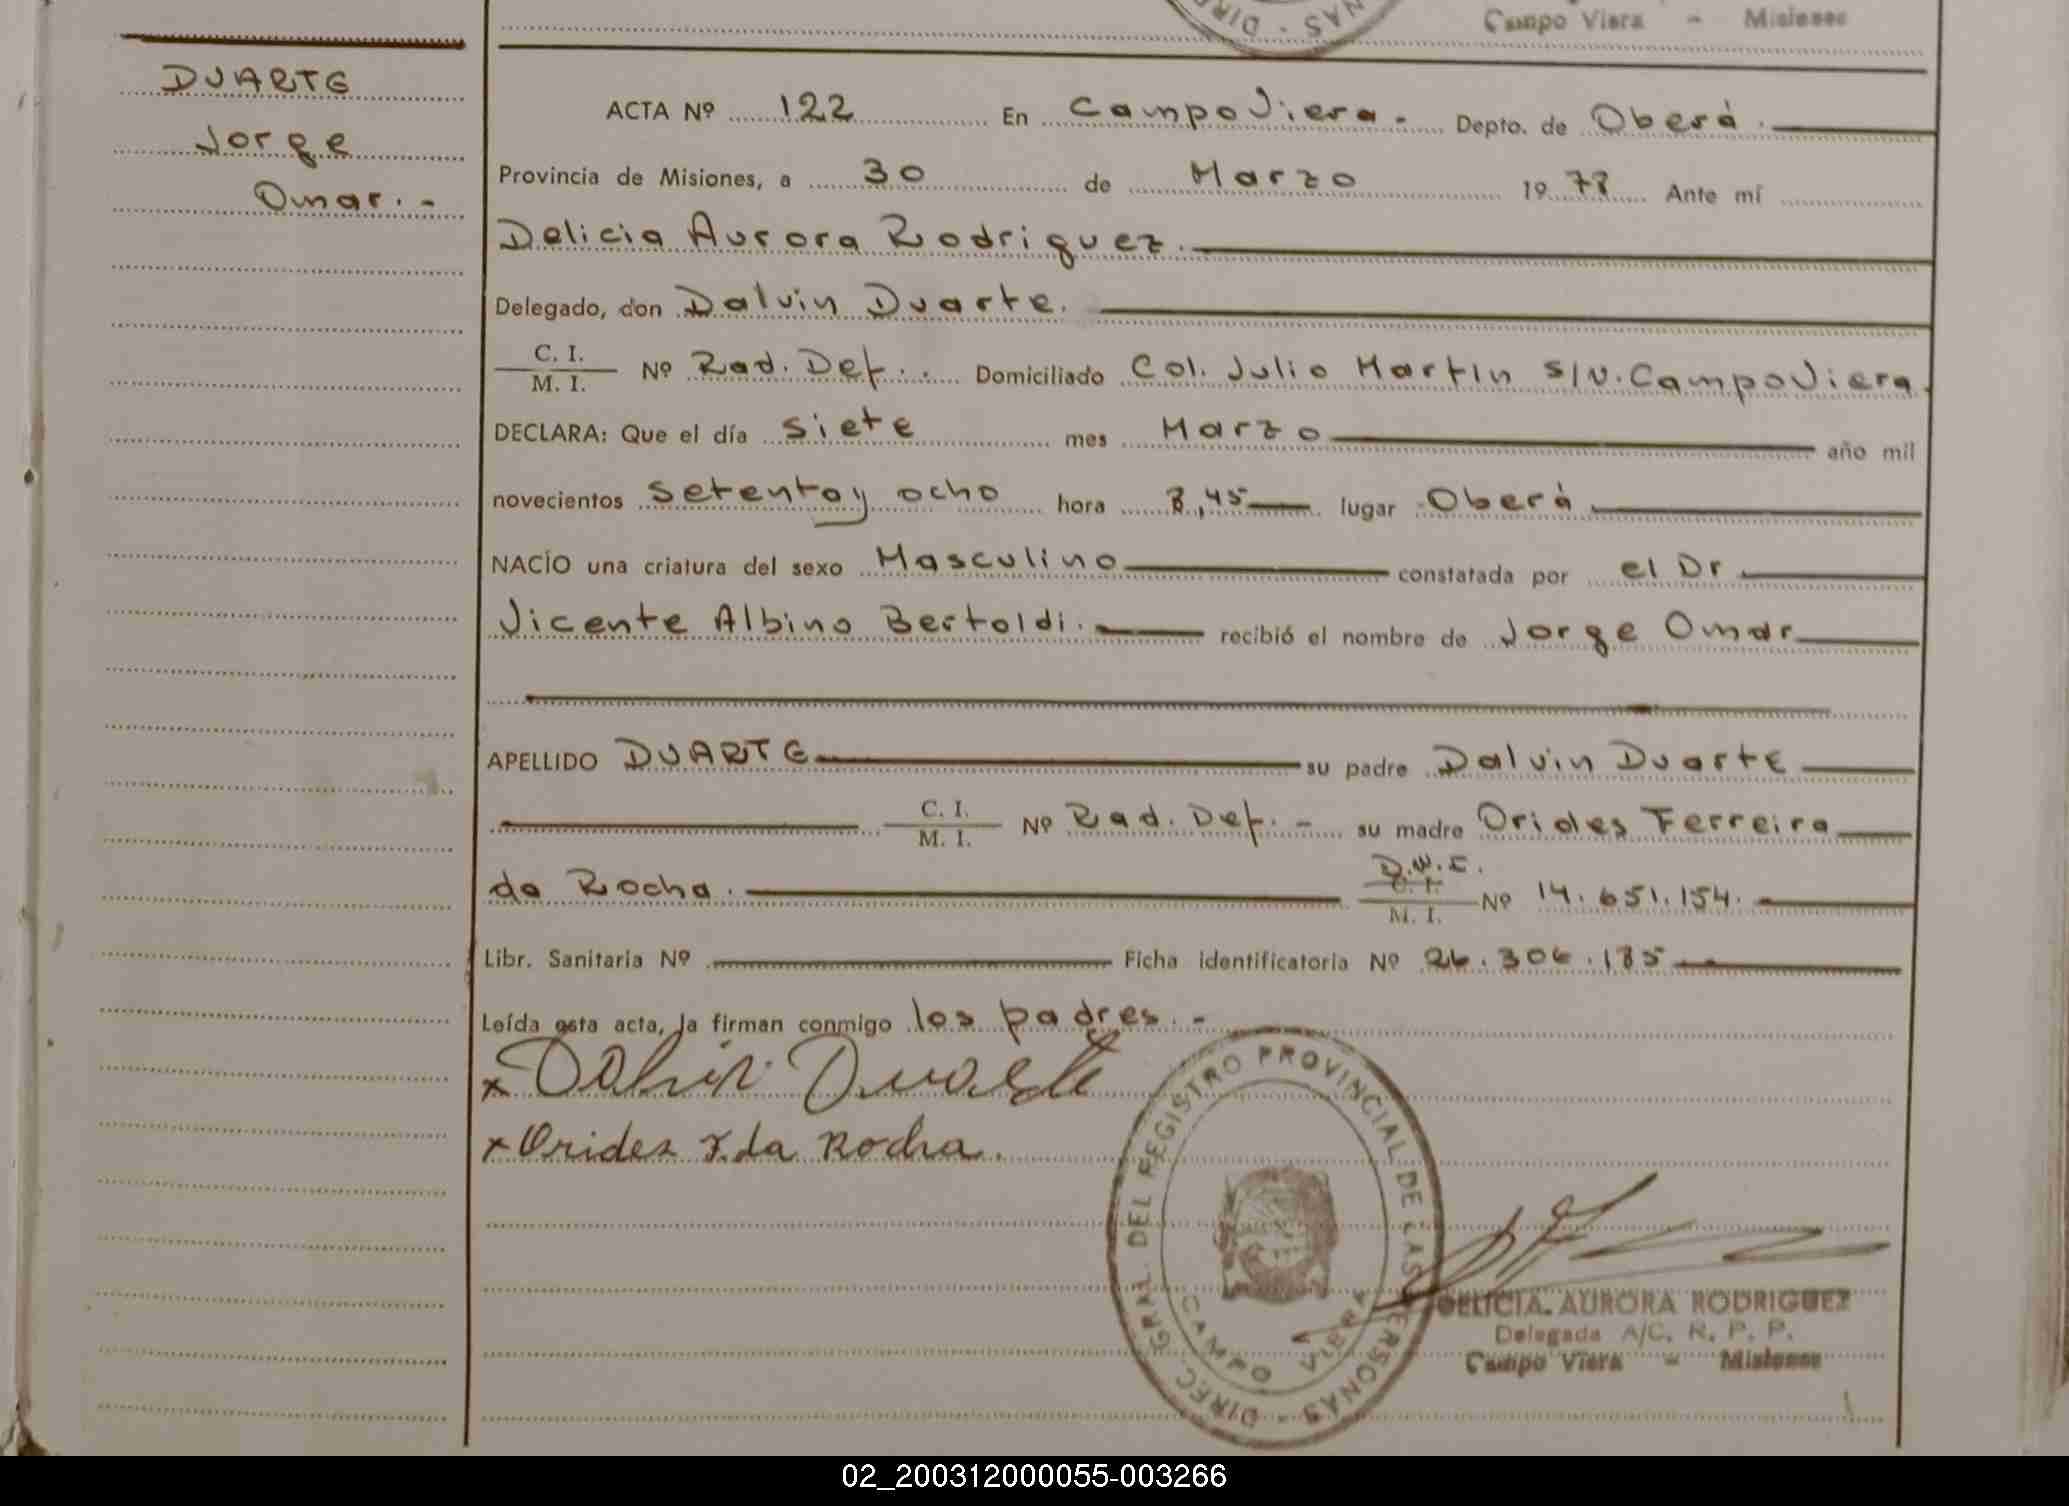 Campo Viera - Misiones
DUARTE
Jorge
Omar.-
ACTA Nº 122 En Campo Viera.- Depto. de Oberá.
Provincia de Misiones, a 30 de Marzo 1978 Ante mí
Delicia Aurora Rodriguez.
Delegado, don Dalvin Duarte.
C. I. / M. I. Nº Rad. Def.. Domiciliado Col. Julio Martin S/N. Campo Viera.
DECLARA: Que el día siete mes Marzo año mil
novecientos setenta y ocho hora 8,45 lugar Oberá
NACIO una criatura del sexo Masculino constatada por el Dr
Vicente Albino Bertoldi. recibió el nombre de Jorge Omar
APELLIDO DUARTE su padre Dalvin Duarte
C. I. / M. I. Nº Rad. Def.- su madre Orides Ferreira
da Rocha. D.N.I. C. I. / M. I. Nº 14.651.154.
Libr. Sanitaria Nº Ficha identificatoria Nº 26.306.185
Leída esta acta, la firman conmigo los padres.-
x Dalvin Duarte
x Orides F. da Rocha.
DIREC. GRAL. DEL REGISTRO PROVINCIAL DE LAS PERSONAS
CAMPO VIERA
DELICIA AURORA RODRIGUEZ
Delegada A/C. R. P. P.
Campo Viera - Misiones
02_200312000055-003266